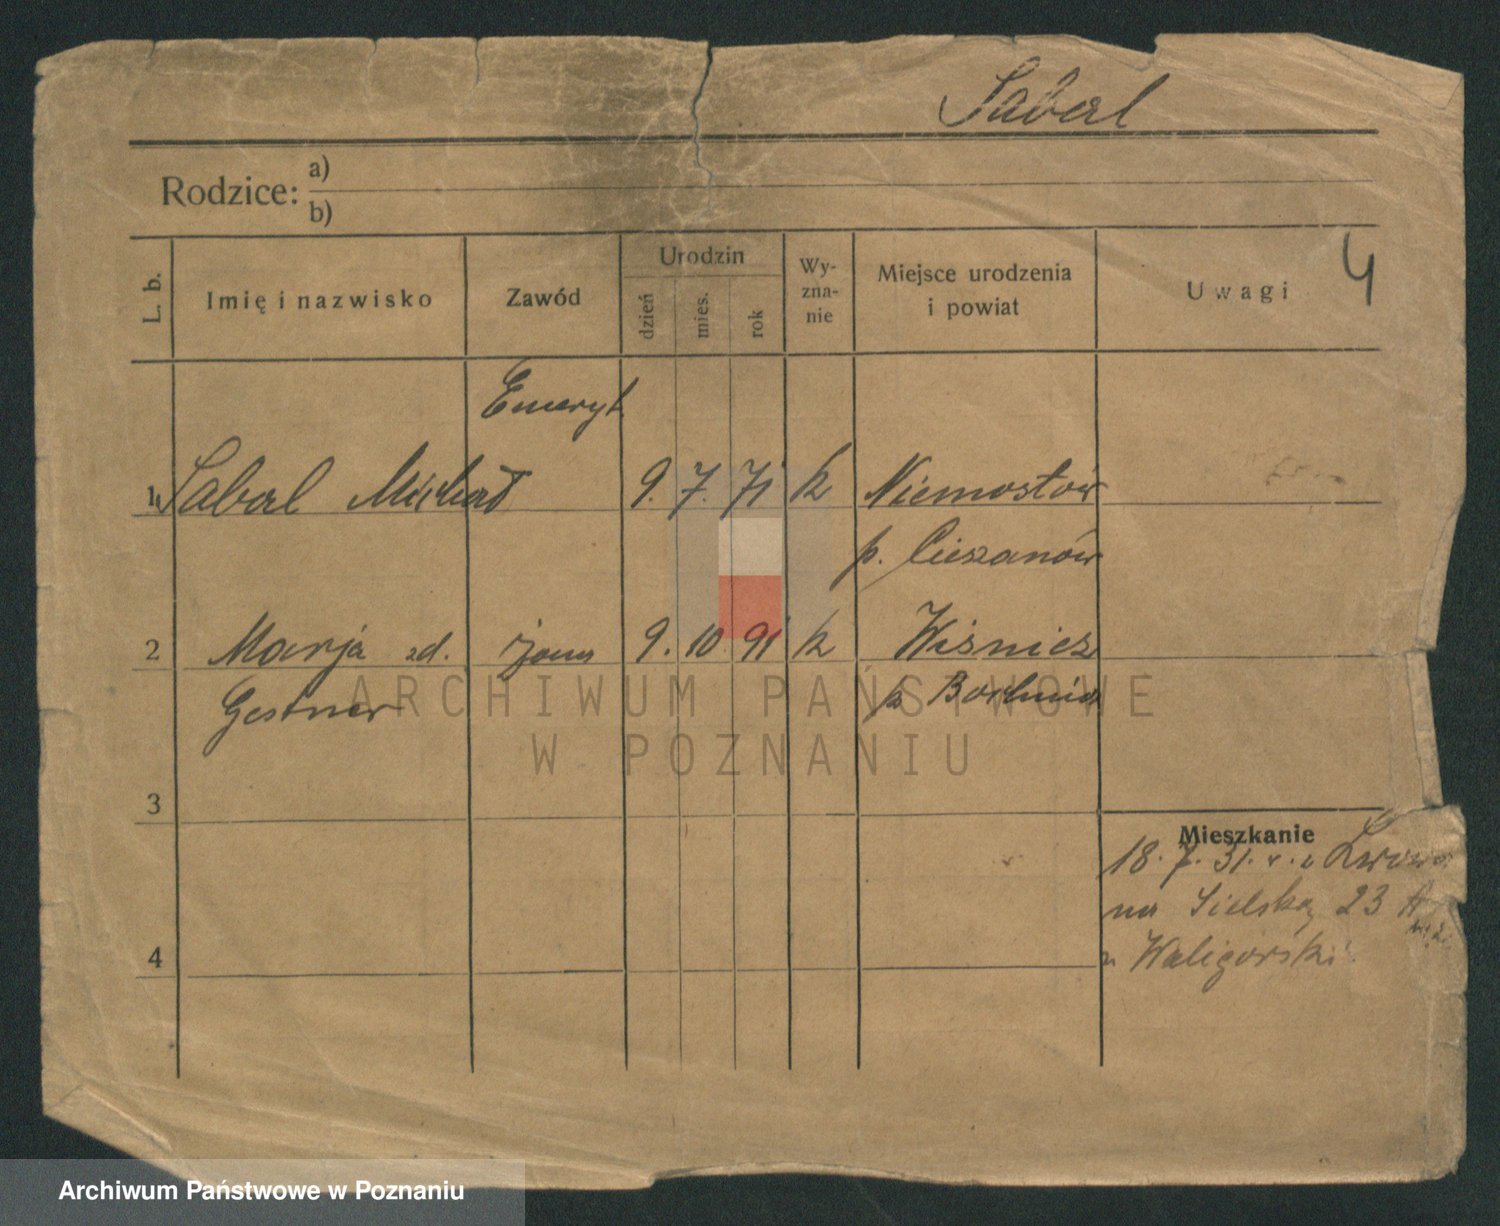 Sabal
Rodzice: a)
b)
L. b. Imię i nazwisko Zawód Urodzin dzień mies. rok Wy-zna-nie Miejsce urodzenia i powiat Uwagi 4
Emeryt
1 Sabal Michał 9. 7. 71 k Niemostów
p. Cieszanów
2 Marja zd. żona 9. 10 91 k Wiśnicz
Gestner p Bochnia
ARCHIWUM PAŃSTWOWE
W POZNANIU
3
Mieszkanie
18. 7. 31. r. z Lwowa
na Sielską 23
4
u Waligórski
Archiwum Państwowe w Poznaniu